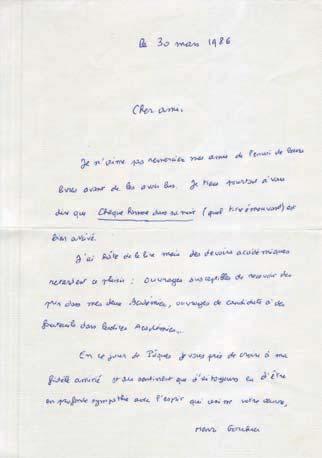 le 30 mars 1986
Cher ami,
Je n'aime pas remercier mes amis de l'envoi de leurs
livres avant de les avoir lus. Je tiens pourtant à vous
dire que Chaque homme dans sa nuit (quel titre émouvant) est
bien arrivé.
J'ai hâte de le lire mais des devoirs académiques
retardent ce plaisir : ouvrages susceptibles de recevoir des
prix dans mes deux Académies, ouvrages de candidats à des
fauteuils dans lesdites Académies...
En ce jour de Pâques je vous prie de croire à ma
fidèle amitié et au sentiment que j'ai toujours eu d'être
en profonde sympathie avec l'esprit qui anime votre œuvre,
Henri Gouhier